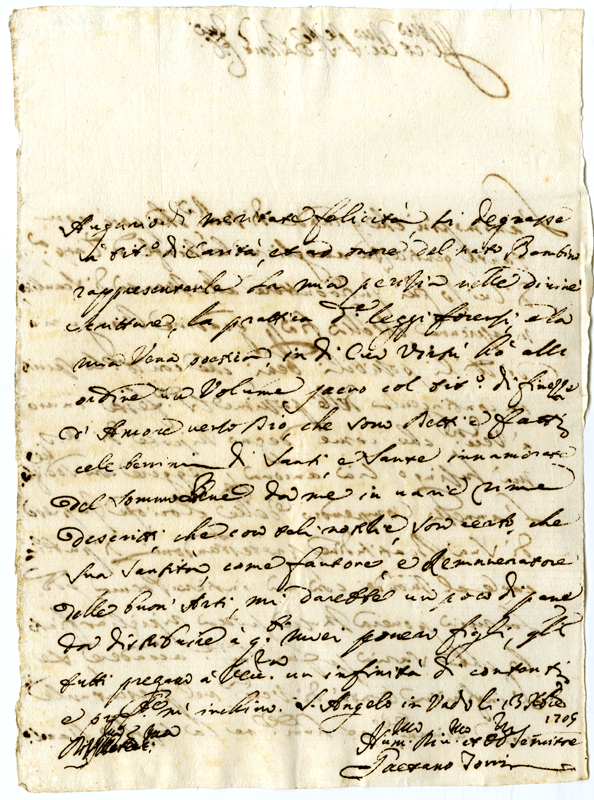 Augurio di meritate felicità, si degnasse
à tit.º di Carità, et ad onore del nato Bambino
rappresentarle la mia perizia nelle divine
scritture, la prattica leggi forensi, e la
mia Vena poetica, in di Cui Virtù hò all'
ordine un Volume sacro col tit.º di finezze
d'Amore verso Dio, che sono Detti e fatti
celeberrimi di Santi, e Sante innamorate
del sommo Bene da me in varie rime
descritti, che con tali notizie, son certo, che
Sua Santità, come fautore, e Remuneratore
delle buon'Arti, mi darebbe un poco di pane
da distribuire à miei poveri figli, quali
tutti pregano à un infinità di contenti
e m'inchino. S. Angelo in Vado li 13 Xbre
1705
Servitore
Gaetano